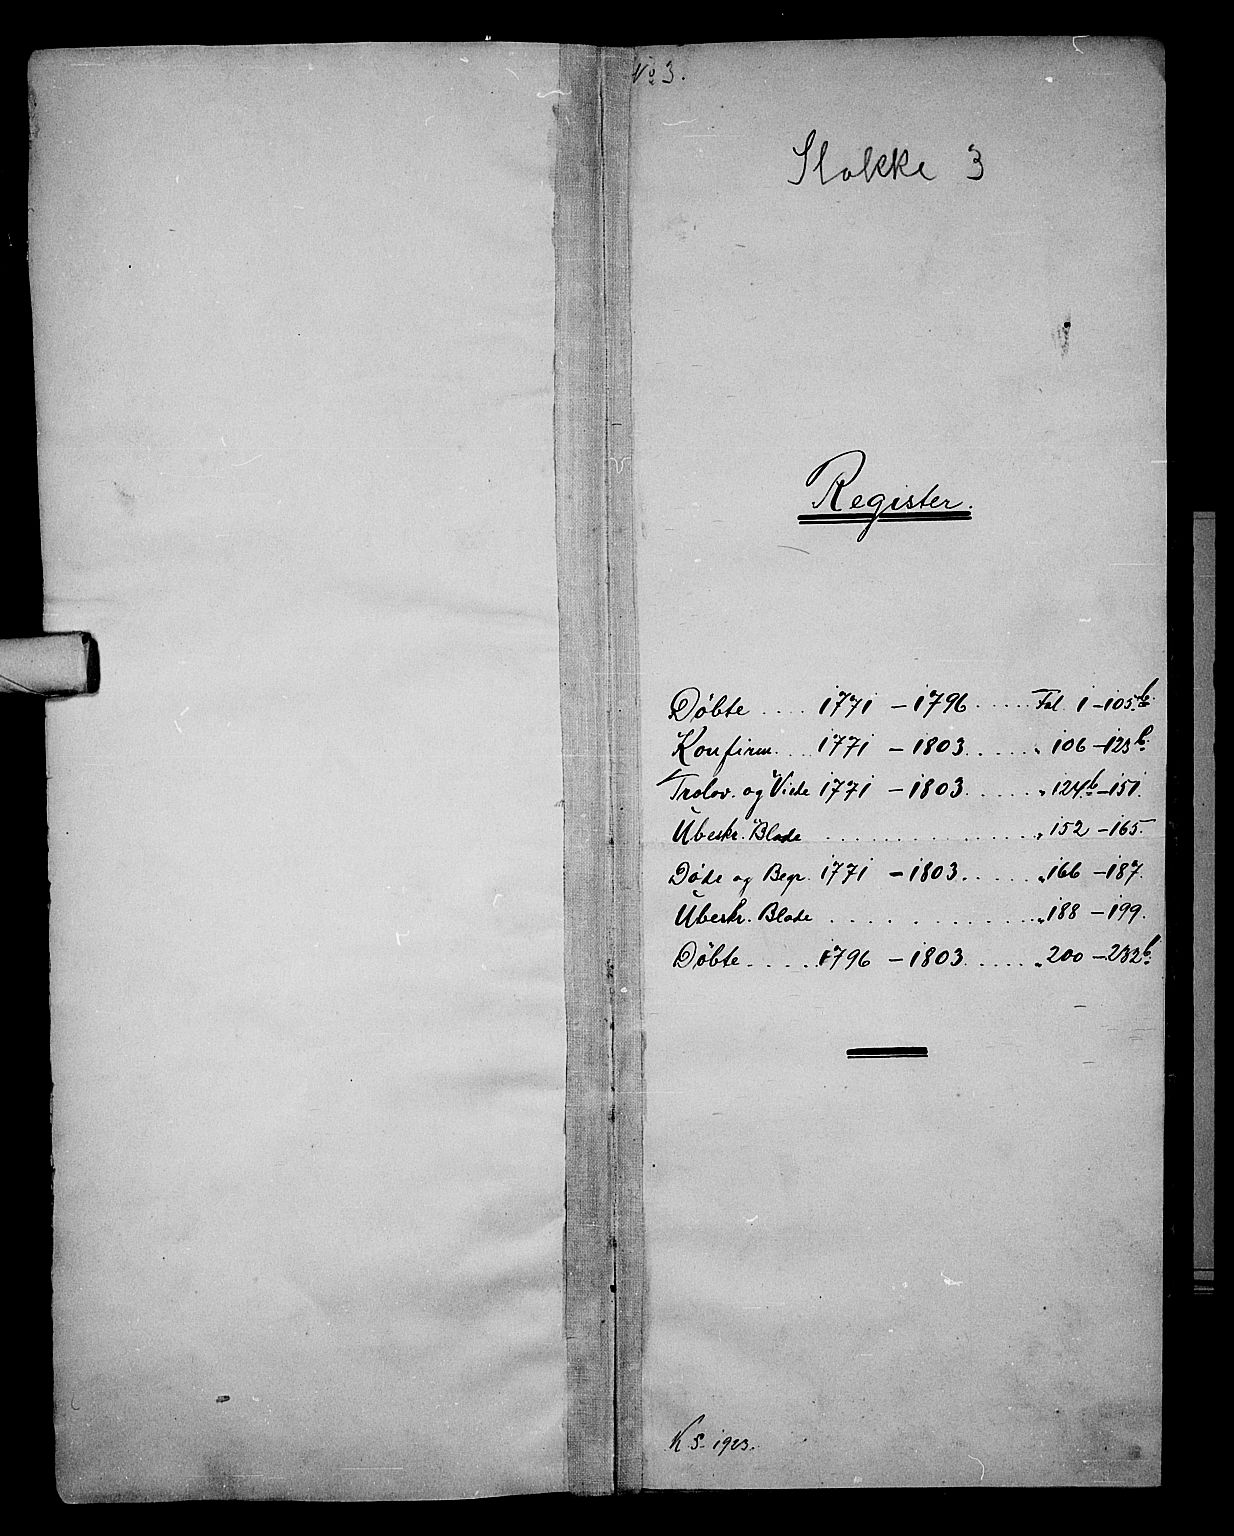 No 3.
Stokke 3
Register.
Døbte .... 1771 - 1796 ..... Fol. 1 - 105 b.
Konfirm. ... 1771 - 1803 ..... " 106 - 123 b.
Trolov. og Viede 1771 - 1803 ..... " 124 b - 151.
Ubeskr. Blade .............. " 152 - 165.
Døde og Begr. 1771 - 1803 ..... " 166 - 187.
Ubeskr. Blade .............. " 188 - 199.
Døbte .... 1796 - 1803 ..... " 200 - 232 b.
K. S. 1923.